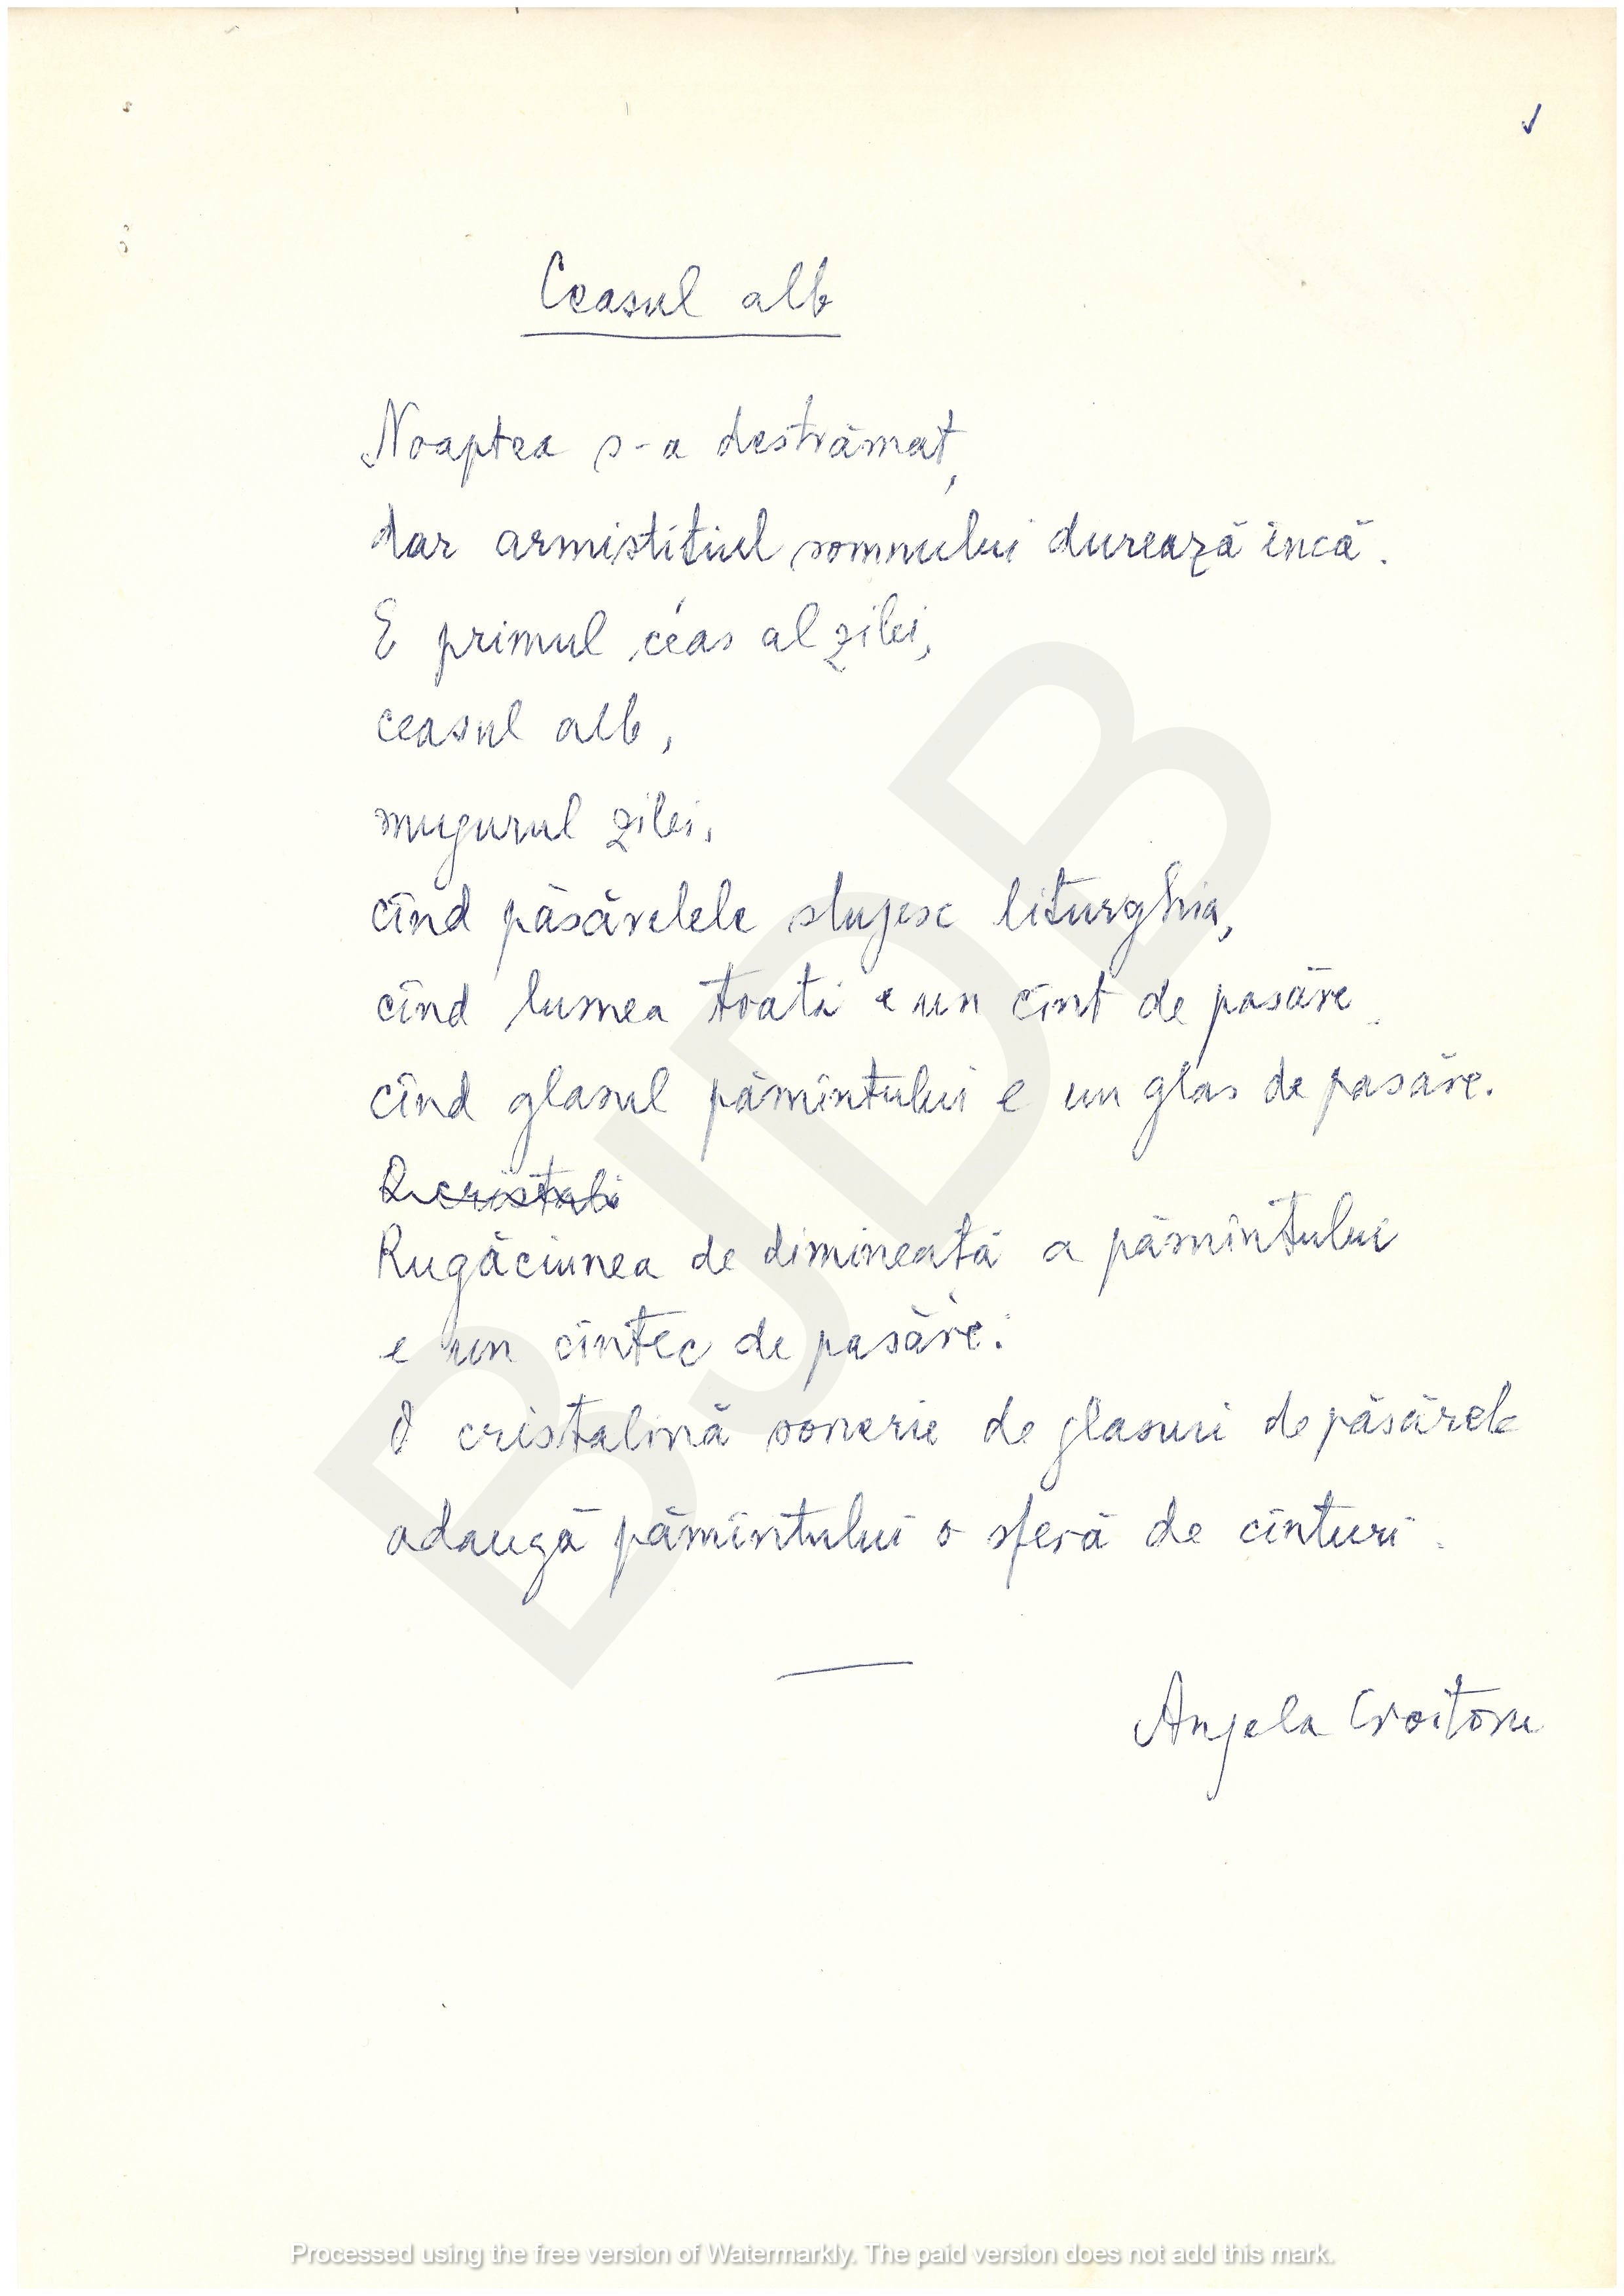 Ceasul alb
Noaptea s-a destrămat,
dar armistițiul somnului durează încă.
E primul ceas al zilei,
ceasul alb,
mugurul zilei,
cînd păsărelele slujesc liturghia,
cînd lumea toată e un cînt de pasăre
cînd glasul pămîntului e un glas de pasăre.
Rugăciunea de dimineață a pămîntului
e un cîntec de pasăre.
O cristalină sonerie de glasuri de păsărele
adaugă pămîntului o sferă de cînturi.
Angela Croitoru
BJDB
Processed using the free version of Watermarkly. The paid version does not add this mark.